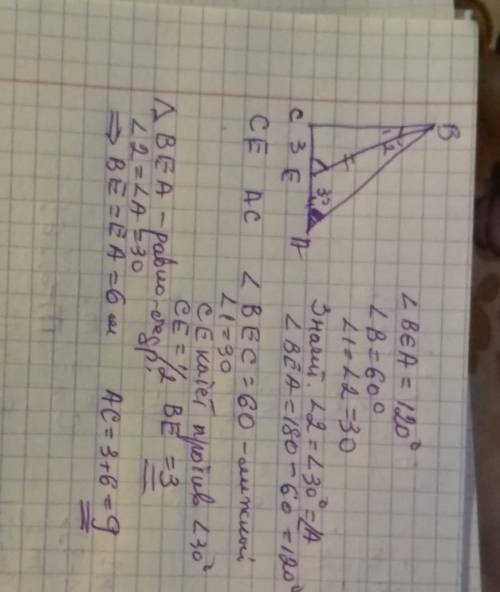 B
1 2
C 3 E 30° A
∠BEA = 120°
∠B = 60°
∠1 = ∠2 = 30
Значит. ∠2 = ∠30° = ∠A
∠BEA = 180 - 60 = 120°
CE AC ∠BEC = 60 - смежный
∠1 = 30
CE катет против ∠30°
CE = 1/2 BE = 3
△ BEA - равно-бедр.
∠2 = ∠A = 30
⇒ BE = EA = 6 см AC = 3 + 6 = 9